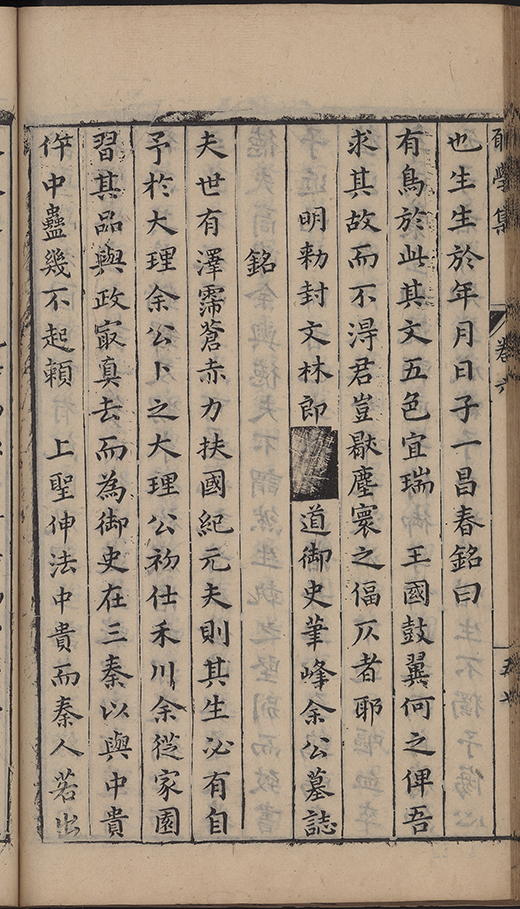 願學集 卷六
也生生於年月日子一昌春銘曰
有鳥於此其文五色宜瑞 王國鼓翼何之俾吾
求其故而不得君豈厭塵寰之偪仄者耶
明勑封文林郎 道御史筆峰余公墓誌
銘
夫世有澤霈蒼赤力扶國紀元夫則其生必有自
予於大理余公卜之大理公初仕禾川余從家園
習其品與政冣真去而為御史在三秦以與中貴
忤中蠱幾不起賴 上聖伸法中貴而秦人若出